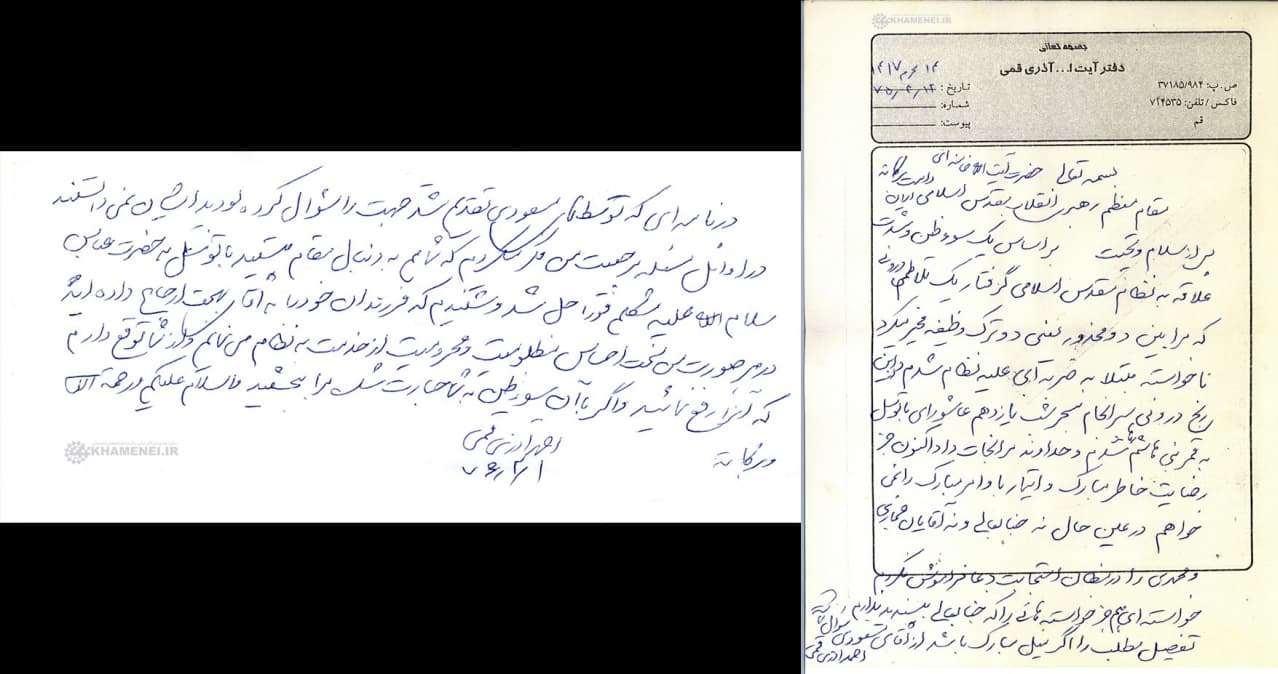 در نامه ای که توسط آقای مسعودی تقدیم شد جهت را سؤال کرده بودید ایشان نمی دانستند
در اوائل مسئله مرجعیت من فکر نمیکردم که شما هم به دنبال مقام هستید با توسل به حضرت عباس
سلام الله علیه مشکلم فوراً حل شد و شنیدیم که فرزندان خود را به آقای بهجت ارجاع داده اید
در هر صورت من تحت احساس مظلومیت و محرومیت از خدمت به نظام می نالم و لکن از شما توقع دارم
که آنرا رفع نمائید و اگر با آن سوء ظن به شما جسارت شد مرا ببخشید والسلام علیکم ورحمة الله
وبرکاته
احمد آذری قمی
۷۶/۳/۱
KHAMENEI.IR
KHAMENEI.IR
بسمه تعالی
دفتر آیت ا... آذری قمی
۱۴ محرم ۱۴۱۷
تاریخ: ۷۵/۳/۱۲
شماره:
پیوست:
ص.پ: ۳۷۱۸۵/۹۸۴
فاکس/تلفن: ۷۲۴۵۳۵
قم
بسمه تعالی حضرت آیت الله خامنه ای دامت برکاته
مقام معظم رهبری انقلاب مقدس اسلامی ایران
پس از سلام و تحیت براساس یک سوء ظن و شدت
علاقه به نظام مقدس اسلامی گرفتار یک تلاطم درونی
که مرا بین دو محذور یعنی دو ترک وظیفه مخیر میکرد
ناخواسته مبتلا به ضربه ای علیه نظام شدم و این
رنج درونی سرانجام سحر شب یازدهم عاشورای با توسل
به قمر بنی هاشم شدم و خداوند مرا نجات داد اکنون جز
رضایت خاطر مبارک و ایتمار با وامر مبارک را نمی
خواهم در عین حال نه جنابعالی و نه آقایان حجازی
و محمدی را در مظان استجابت دعا فراموش نکردم
خواسته ای هم جز خواسته هائی را که جنابعالی بپسندید ندارم
تفصیل مطلب را اگر میل مبارک باشد از آقای مسعودی سؤال
احمد آذری قمی